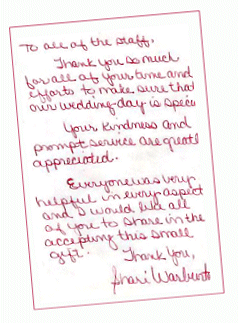 To all of the staff,
Thank you so much
for all of your time and
efforts to make sure that
our wedding day is speci
Your kindness and
prompt service are greatl
appreciated.
Everyone was very
helpful in every aspect
and I would like all
of you to share in the
accepting this small
gift.
Thank you,
Shari Warbent